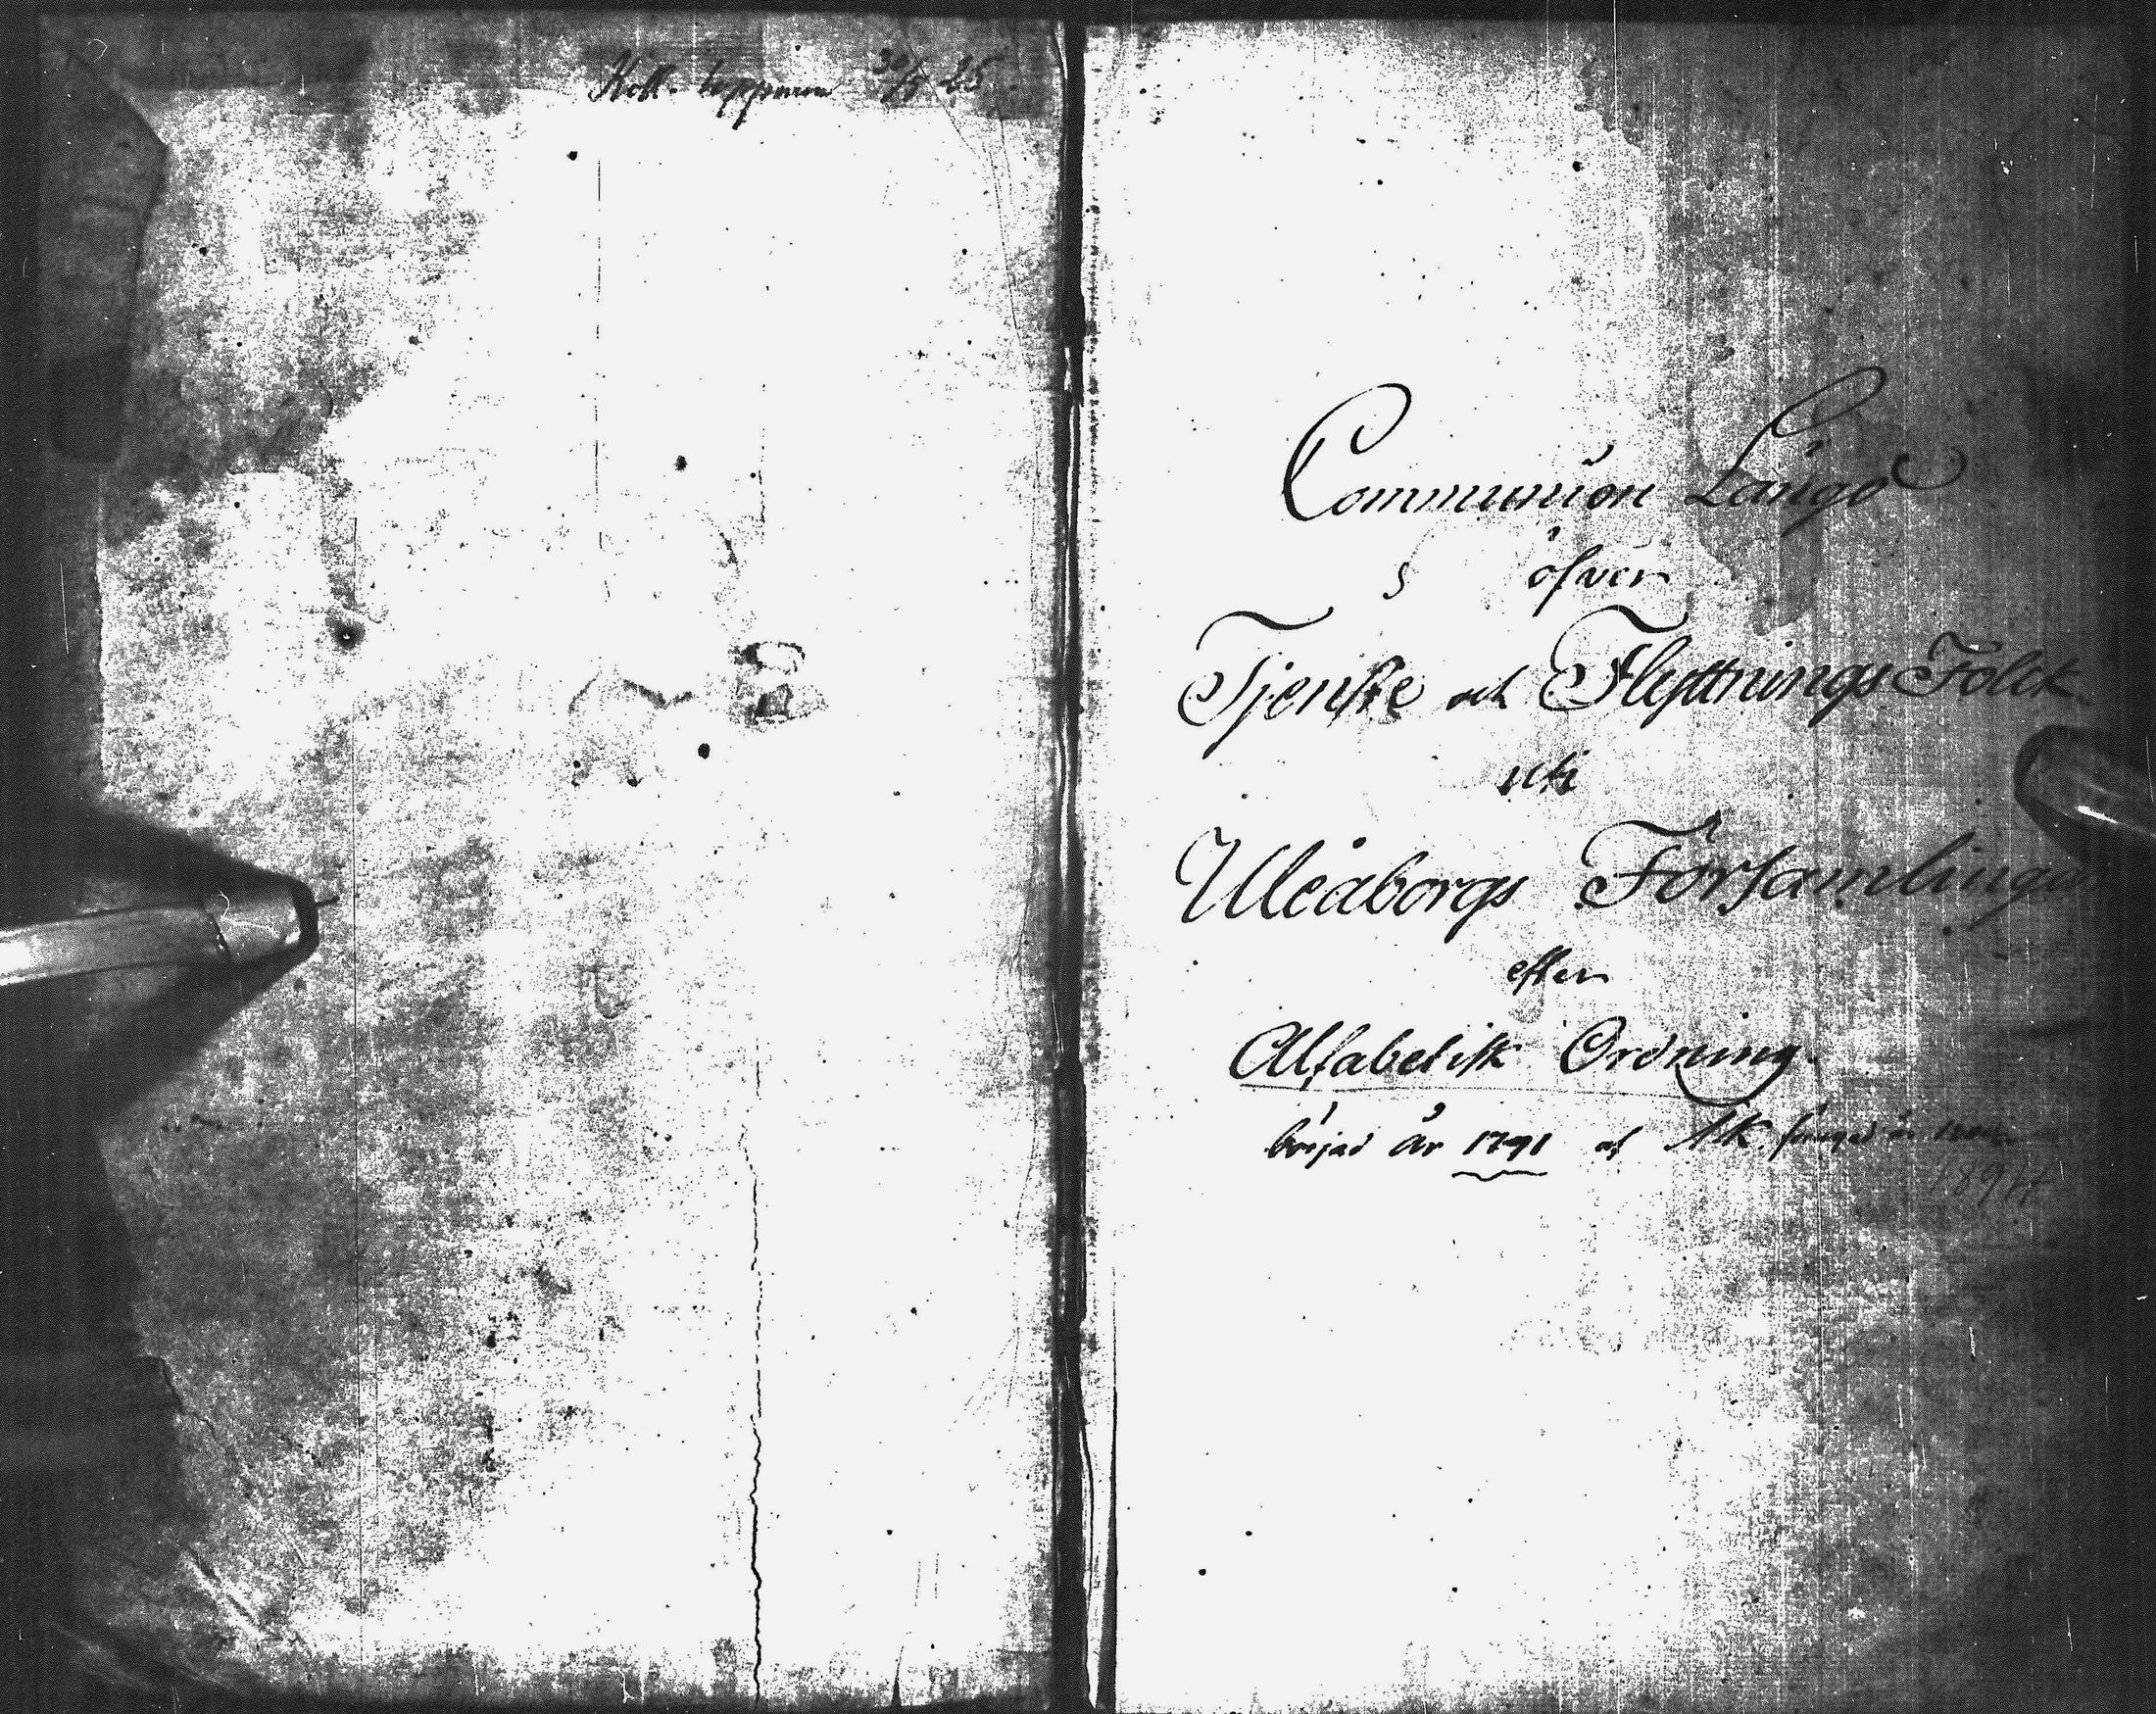 30/5 25
Communion Längd
öfver
Tjenste och Flyttnings Folck
uti
Uleåborgs Församling
efter
Alfabetisk Ordning.
börjad år 1791 af